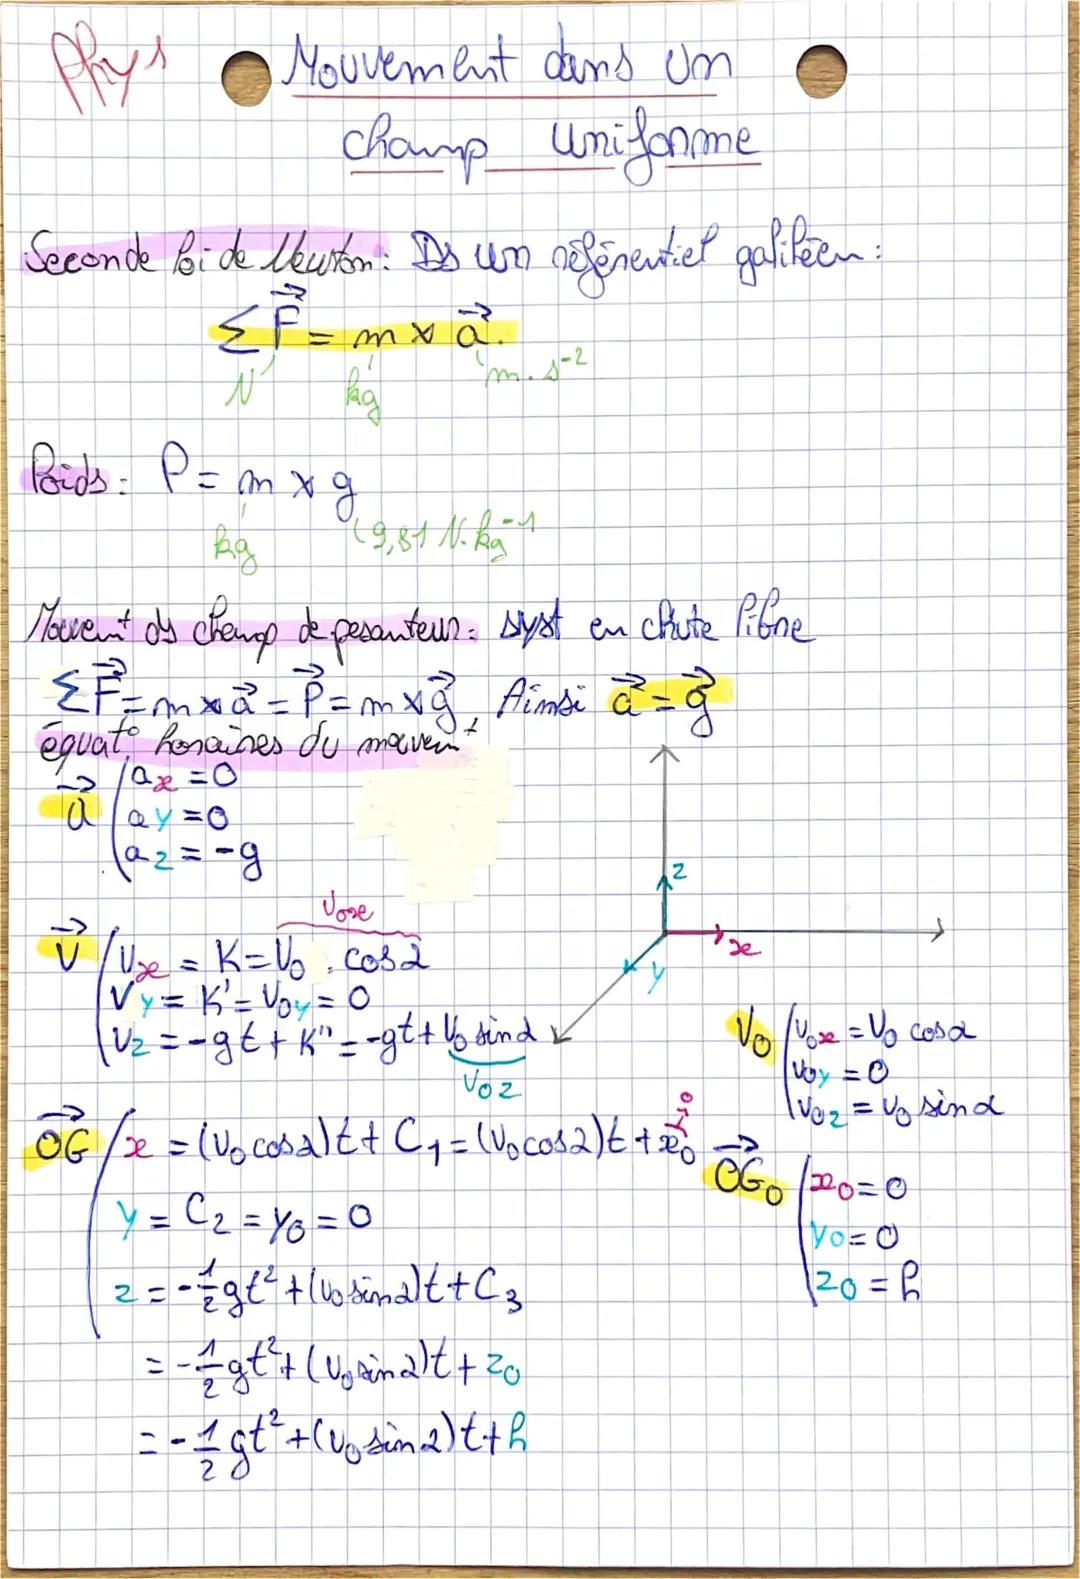 Phys
Mouvement dans un
champ uniforme
Seconde loi de Newton : Ds un référentiel galiléen :
ΣF⃗ = m × a⃗.
N kg m.s⁻²
Poids : P = m × g
kg 9,81 N.kg⁻¹
Mouvemt ds champ de pesanteur : syst en chute libre
ΣF⃗ = m × a⃗ = P⃗ = m × g⃗, Ainsi a⃗ = g⃗
équat° horaires du mouvemt
a⃗ ( ax = 0
ay = 0
az = -g
z
x
y
V0x
V⃗ ( Vx = K = V0 . cos α
Vy = K' = V0y = 0
Vz = -gt + K'' = -gt + V0 sin α
V0z
V0 ( V0x = V0 cos α
V0y = 0
V0z = V0 sin α
OG⃗ ( x = (V0 cos α)t + C1 = (V0 cos α)t + x0 → 0
y = C2 = y0 = 0
z = -1/2 gt² + (V0 sin α)t + C3
= -1/2 gt² + (V0 sin α)t + z0
= -1/2 gt² + (V0 sin α)t + h
OG0⃗ ( x0 = 0
y0 = 0
z0 = h